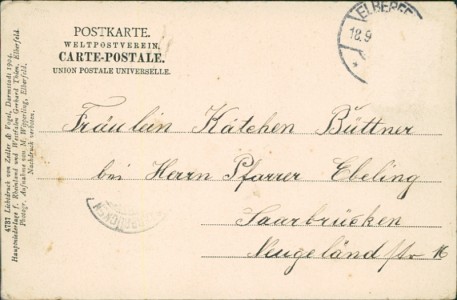 POSTKARTE.
WELTPOSTVEREIN.
CARTE-POSTALE.
UNION POSTALE UNIVERSELLE.
ELBERFE
18.9
Fräulein Kätchen Büttner
bei Herrn Pfarrer Ebeling
Saarbrücken
Neugeländstr 16
4757 Lichtdruck von Zedler & Vogel, Darmstadt 1904.
Hauptniederlage f. Rheinland und Westfalen Gerhard Thien, Elberfeld.
Photogr. Aufnahme von M. Wipperling, Elberfeld.
Nachdruck verboten.